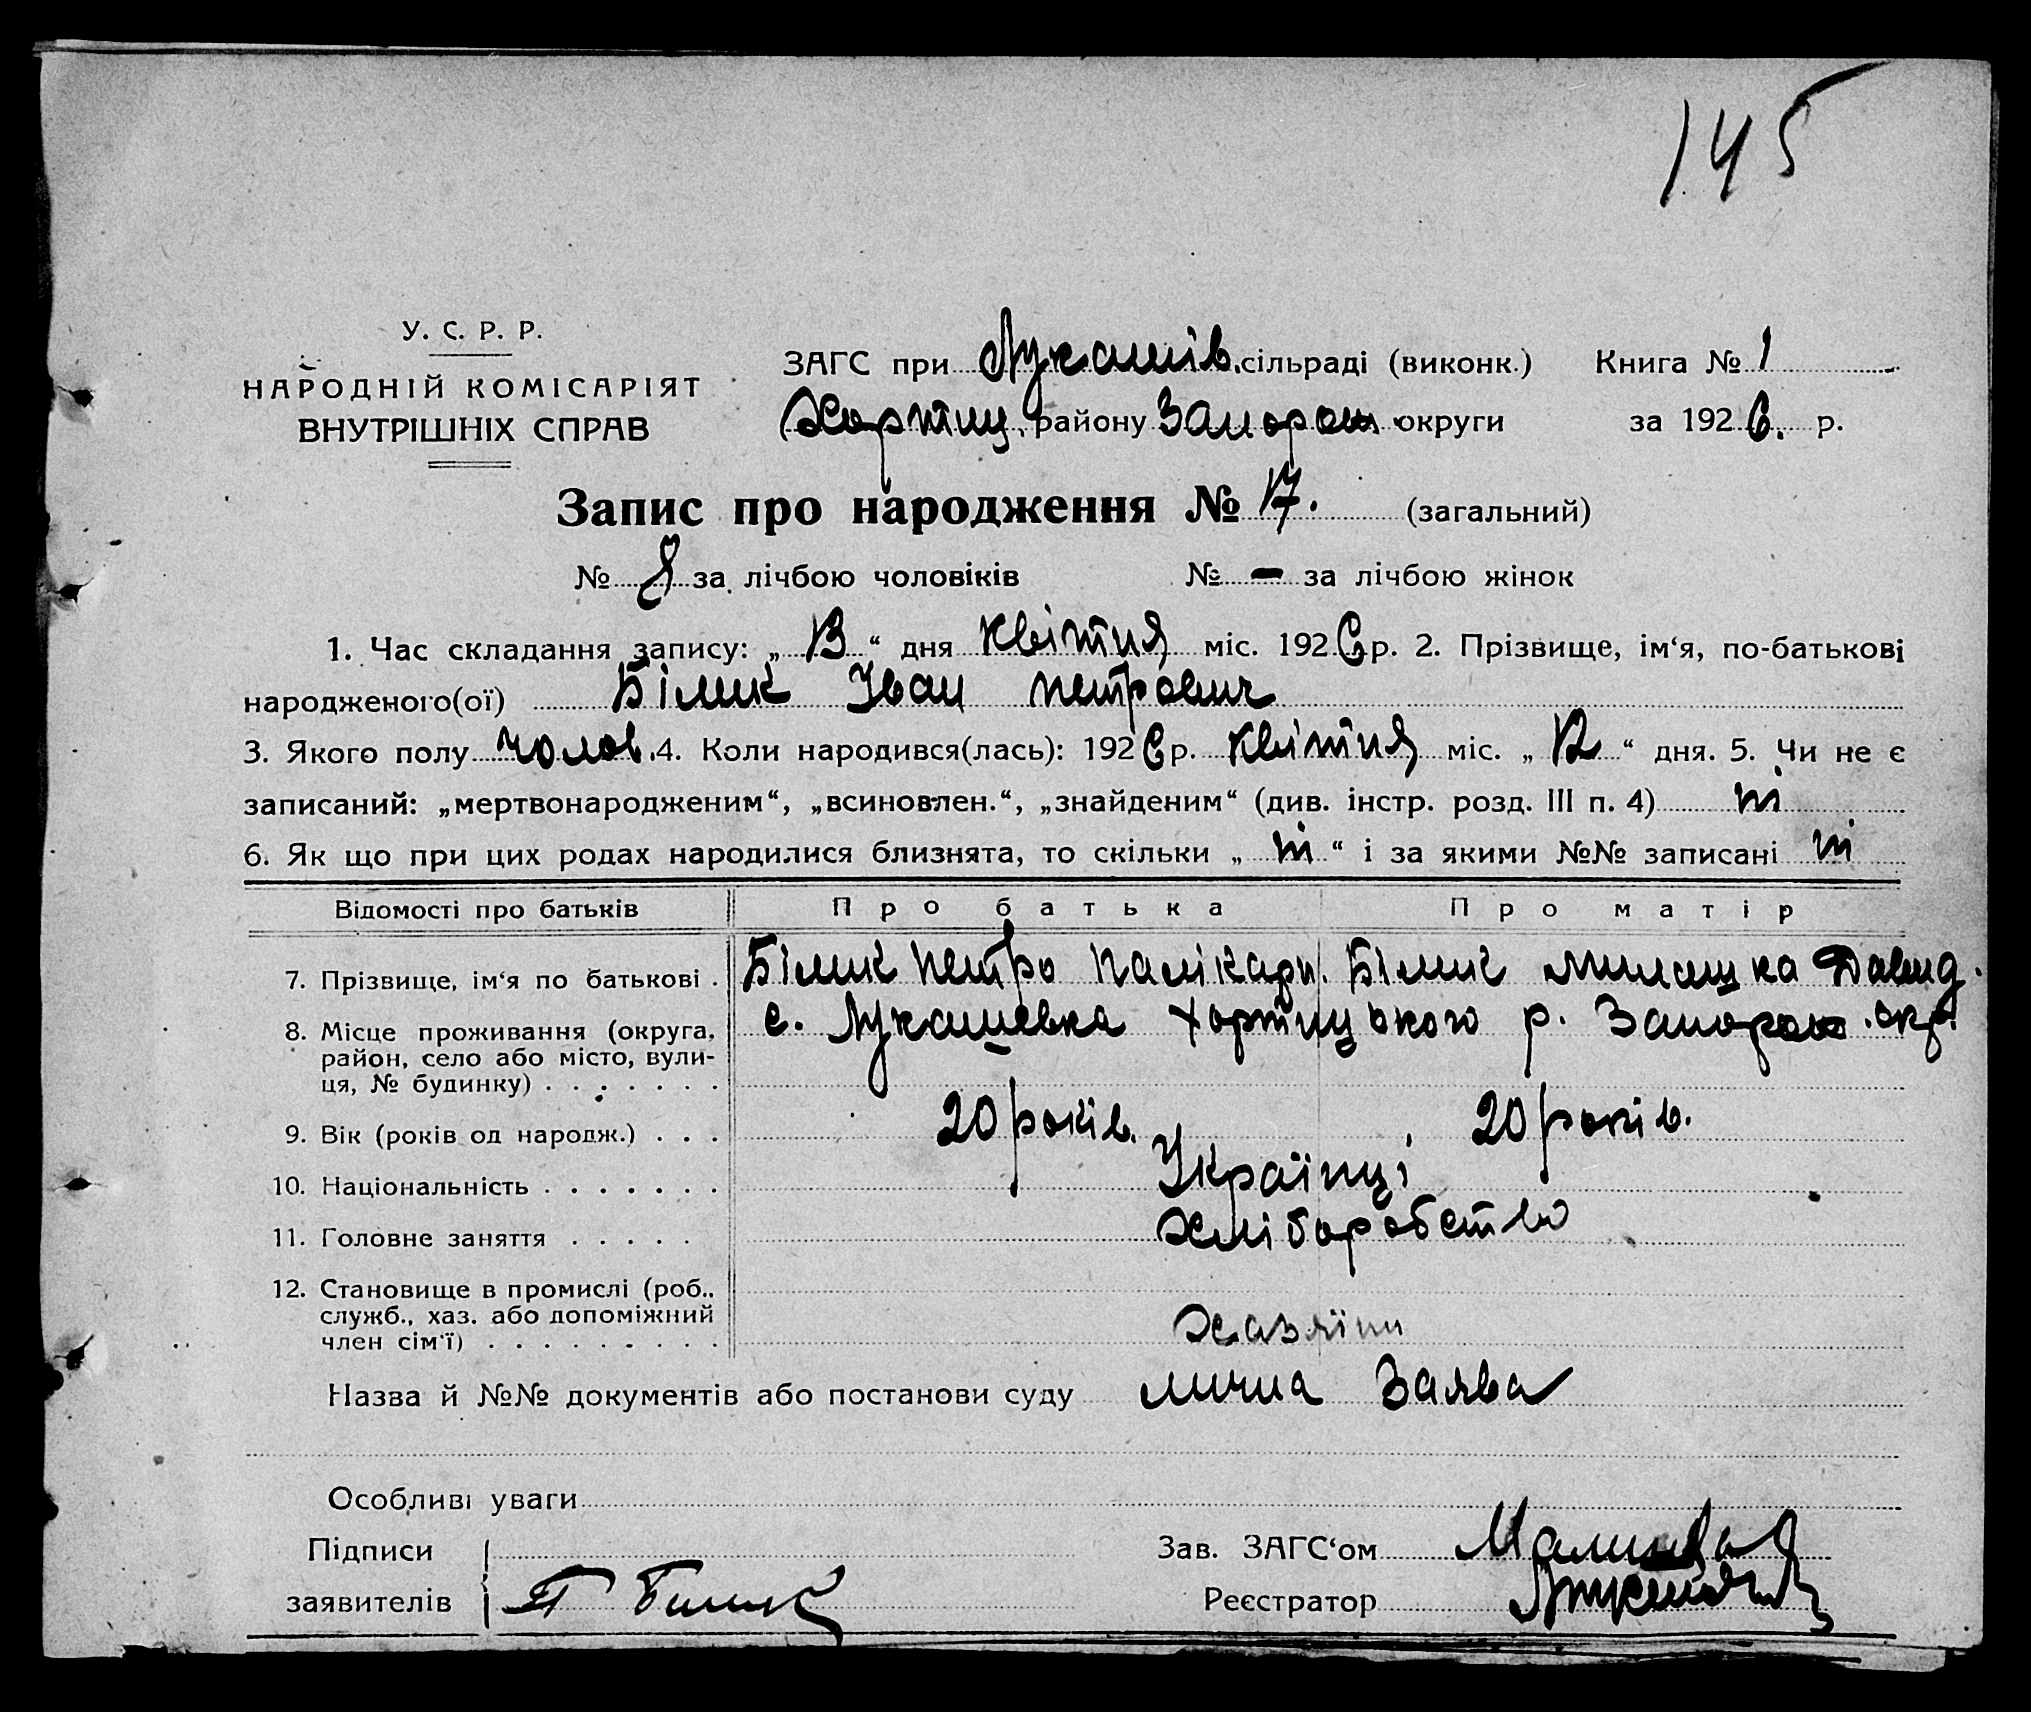 145
У. С. Р. Р.
НАРОДНІЙ КОМІСАРІЯТ
ВНУТРІШНІХ СПРАВ
ЗАГС при Лукашів. сільраді (виконк.) Книга № 1
Хортиц. району Запорож. округи за 1926. р.
Запис про народження № 17. (загальний)
№ 8 за лічбою чоловіків № — за лічбою жінок
1. Час складання запису: „ 13 “ дня квітня міс. 1926 р. 2. Прізвище, ім‘я, по-батькові
народженого(ої) Білик Іван Петрович
3. Якого полу чолов. 4. Коли народився(лась): 1926 р. квітня міс. „ 12 “ дня. 5. Чи не є
записаний: „мертвонародженим“, „всиновлен.“, „знайденим“ (див. інстр. розд. III п. 4) ні
6. Як що при цих родах народилися близнята, то скільки „ ні “ і за якими №№ записані ні
Відомості про батьків Про батька Про матір
7. Прізвище, ім‘я по батькові . Білик Петро Полікарп. Білик Давид.
8. Місце проживання (округа, с. Лукашевка Хортицького р. Запорож. окр.
район, село або місто, вули-
ця, № будинку) . . . . . . .
9. Вік (років од народж.) . . . 20 років. 20 років.
10. Національність . . . . . . . Українці
11. Головне заняття . . . . . хліборобство
12. Становище в промислі (роб.,
служб., хаз. або допоміжний
член сім‘ї) . . . . . . . . . хазяїни
Назва й №№ документів або постанови суду лична Заява
Особливі уваги
Підписи Зав. ЗАГС‘ом
заявителів П Билик Реєстратор